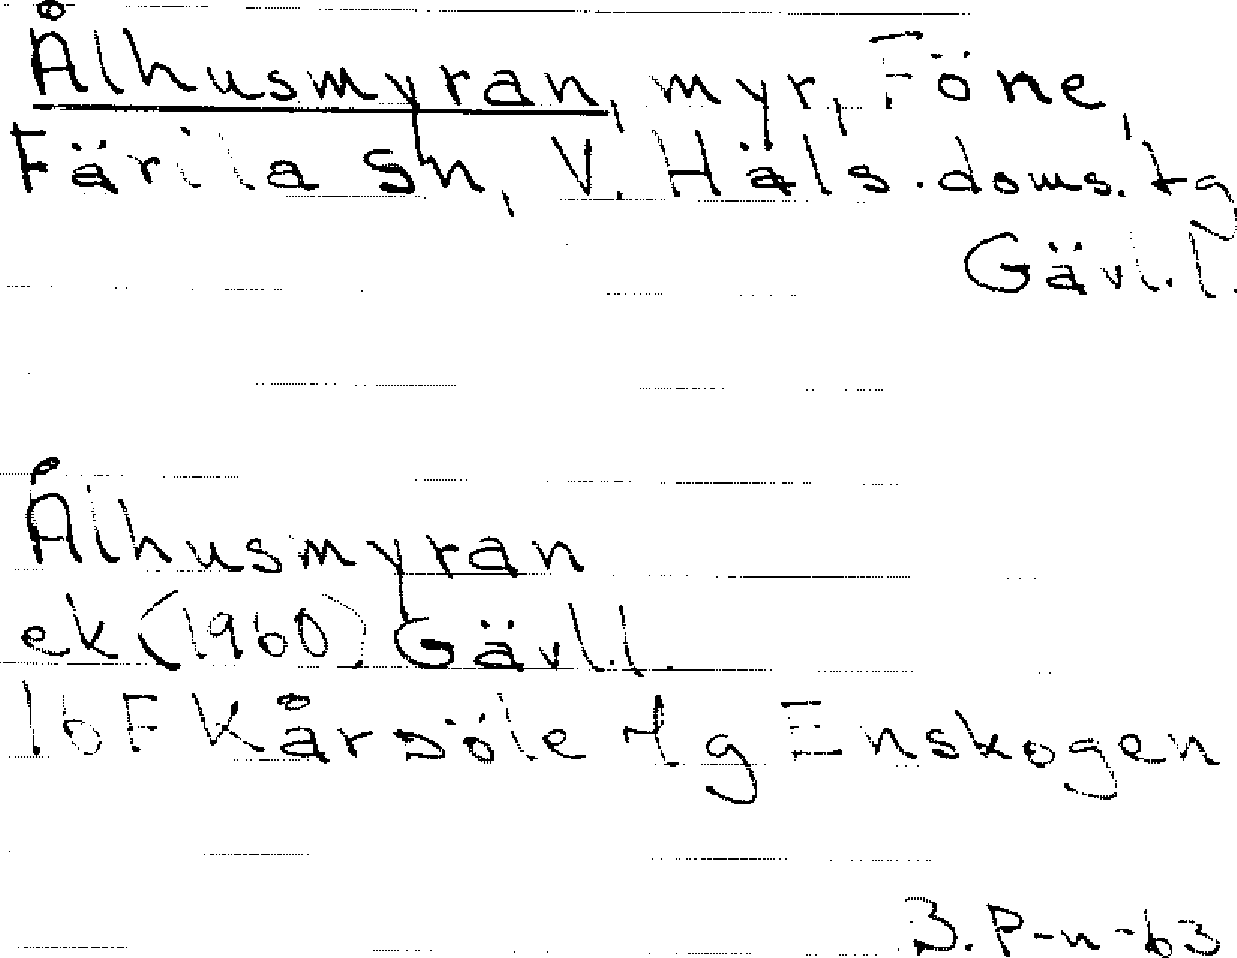 Ålhusmyran, myr, Föne,
Färila sn, V. Häls. doms. tg
Gävl. l.
Ålhusmyran
ek (1960) Gävl. l.
16F Kårböle 4g Enskogen
B. P-n-63